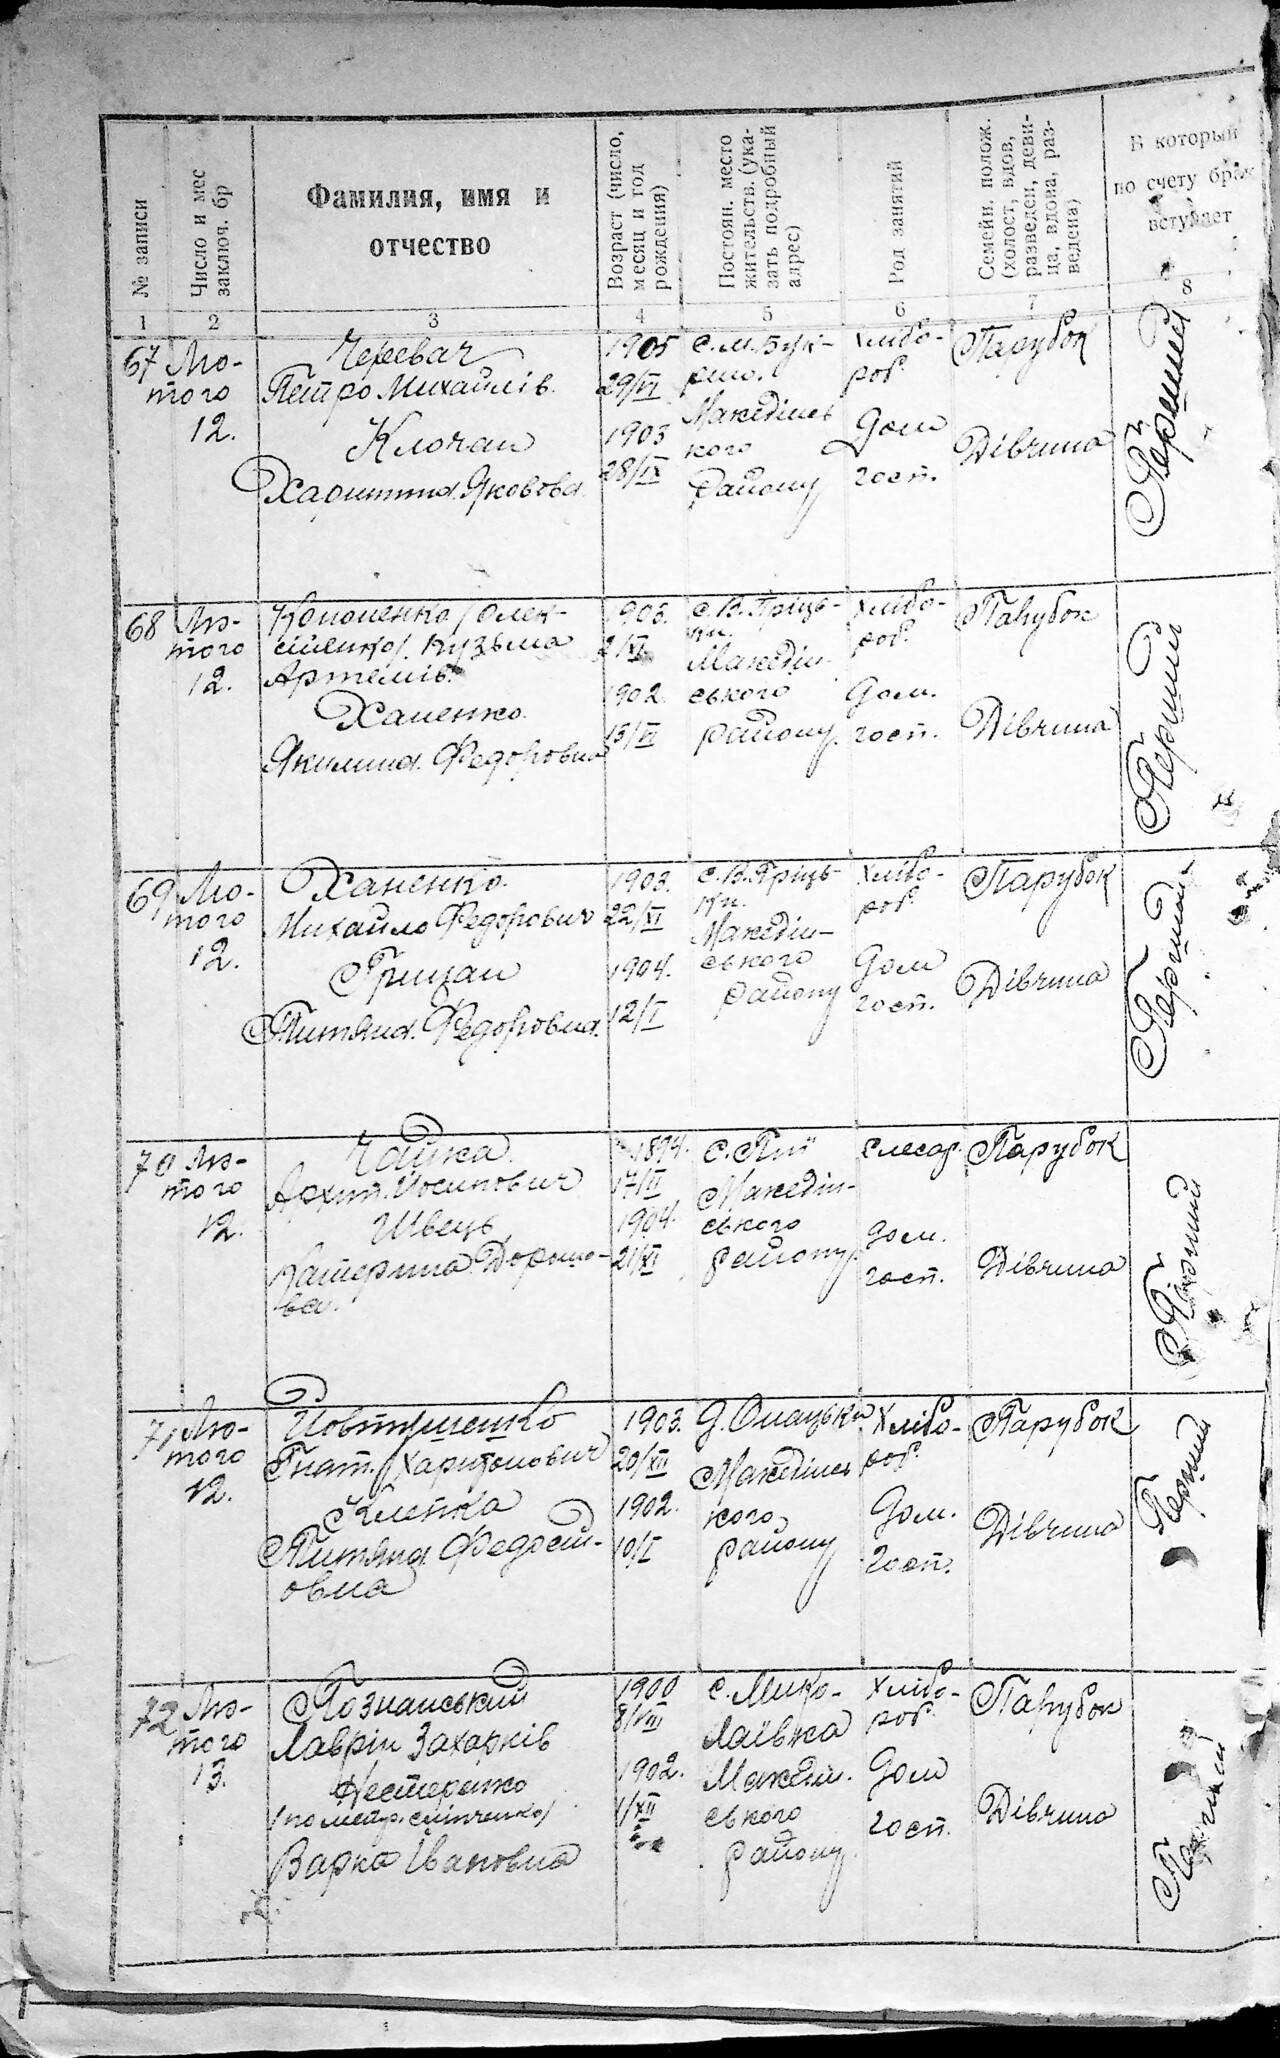 № записи
Число и мес
заключ. бр
Фамилия, имя и
отчество
Возраст (число,
месяц и год
рождения)
Постоян. место
жительств. (ука-
зать подробный
адрес)
Род занятий
Семейн. полож.
(холост, вдов,
разведен, деви-
ца, вдова, раз-
ведена)
В который
по счету брак
вступает
1 2 3 4 5 6 7 8
67
Лю-
того
12.
Черевач
Петро Михайлів.
Клочан
Харитина Яковова
1905
29/VI
1903
28/IX
с. М. Бук-
рин.
Македонсь
кого
району
Хлібо-
роб.
Дом
госп.
Парубок
Дівчина
Перший
68
Лю-
того
12.
Кононенко /Олек-
сієнко/. Кузьма
Артемів.
Ханенко.
Якилина Федоровна
1903.
2/XI
1902.
13/VI
с. В. Пріць-
ки.
Македон-
ського
району.
Хлібо-
роб.
Дом.
госп.
Парубок
Дівчина
Перший
69
Лю-
того
12.
Ханенко.
Михайло Федорович
Грицан
Титяна Федоровна.
1903.
22/XI
1904.
12/I
с. В. Пріць-
ки.
Македон-
ського
району
Хлібо-
роб.
Дом
госп.
Парубок
Дівчина
Перший
70
Лю-
того
12.
Чайка
Архип Йосипович
Швець
Катерина Дорошо-
ва.
1894.
17/II
1904.
21/XI
с. Пії
Македон-
ського
району.
слесар
Дом.
госп.
Парубок
Дівчина
Перший
71
Лю-
того
12.
Йовтушенко
Гнат Харитонович
Клепка
Титяна Федосі-
овна
1903.
20/XII
1902.
10/I
Д. Онацьки
Македонсь
кого
району
Хлібо-
роб.
Дом.
госп.
Парубок
Дівчина
Перший
72
Лю-
того
13.
Познанський
Лаврін Захарків
Нестеренко
Варка Івановна
1900
8/VIII
1902.
1/XII
с. Мико-
лаївка
Македон-
ського
району.
Хлібо-
роб.
Дом
госп.
Парубок
Дівчина
Перший